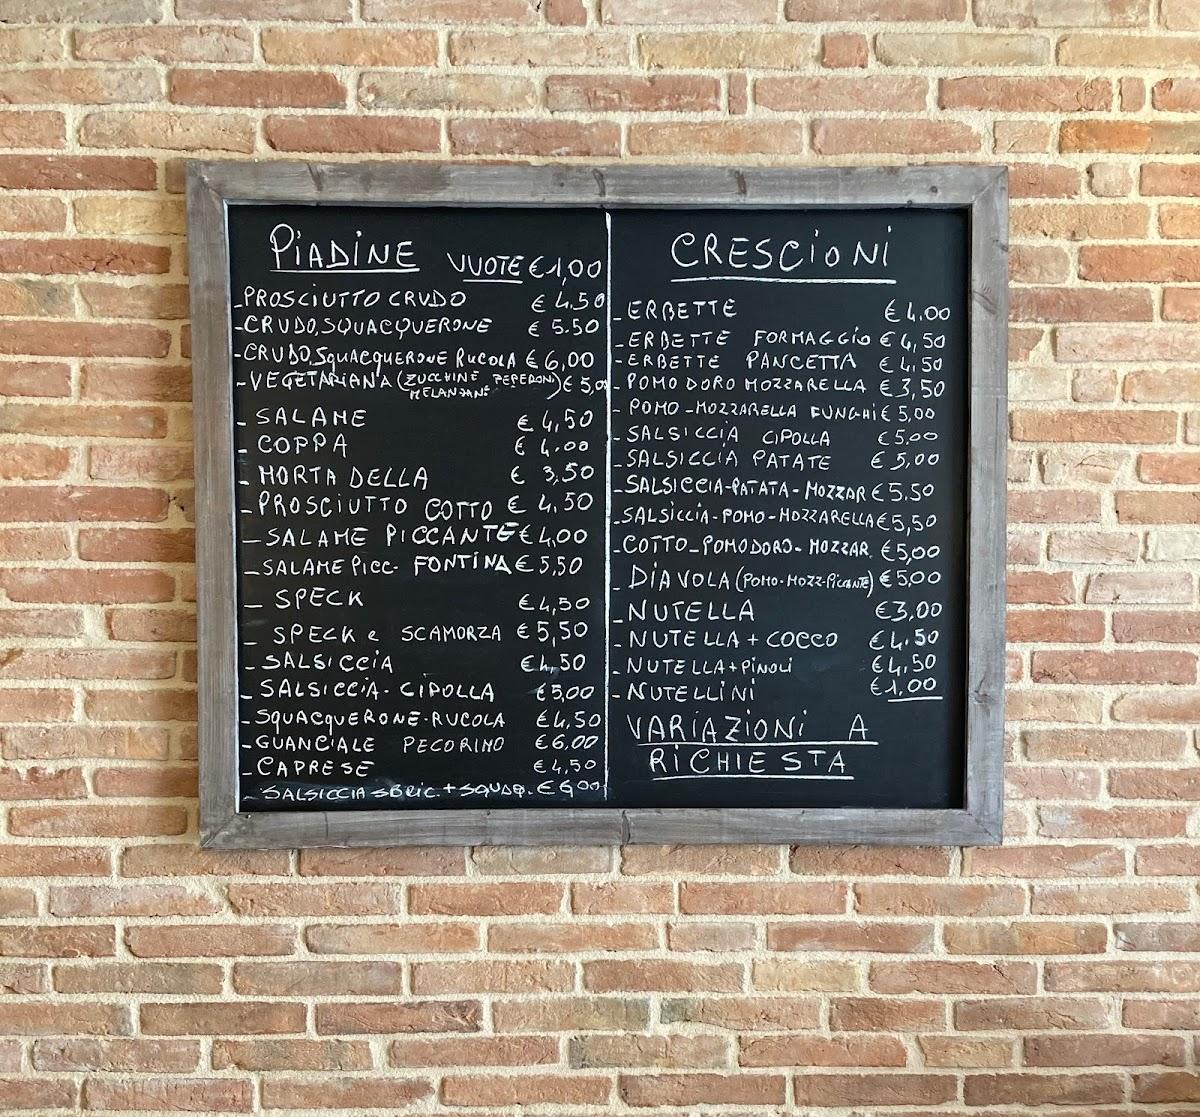 PIADINE VUOTE €1,00
-PROSCIUTTO CRUDO € 4.50
-CRUDO,SQUACQUERONE € 5.50
-CRUDO,SQUACQUERONE RUCOLA € 6,00
-VEGETARIANA (ZUCCHINE PEPERONI MELANZANE) € 5,00
-SALAME € 4,50
-COPPA € 4.00
-MORTADELLA € 3,50
-PROSCIUTTO COTTO € 4,50
-SALAME PICCANTE €4,00
-SALAME PICC- FONTINA € 5,50
-SPECK €4,50
-SPECK e SCAMORZA €5,50
-SALSICCIA €4,50
-SALSICCIA-CIPOLLA €5,00
-SQUACQUERONE-RUCOLA €4,50
-GUANCIALE PECORINO €6,00
-CAPRESE €4,50
-SALSICCIA SBRIC.+SQUAQ. €6,00
CRESCIONI
-ERBETTE €4.00
-ERBETTE FORMAGGIO € 4,50
-ERBETTE PANCETTA € 4,50
-POMODORO MOZZARELLA € 3,50
-POMO-MOZZARELLA FUNGHI € 5,00
-SALSICCIA CIPOLLA €5.00
-SALSICCIA PATATE € 5,00
-SALSICCIA-PATATA-MOZZAR €5.50
-SALSICCIA-POMO-MOZZARELLA €5,50
-COTTO-POMODORO-MOZZAR. €5,00
-DIAVOLA (POMO-MOZZ-PICCANTE) €5,00
-NUTELLA €3,00
-NUTELLA+COCCO €4.50
-NUTELLA+PINOLI €4,50
-NUTELLINI €1,00
VARIAZIONI A
RICHIESTA